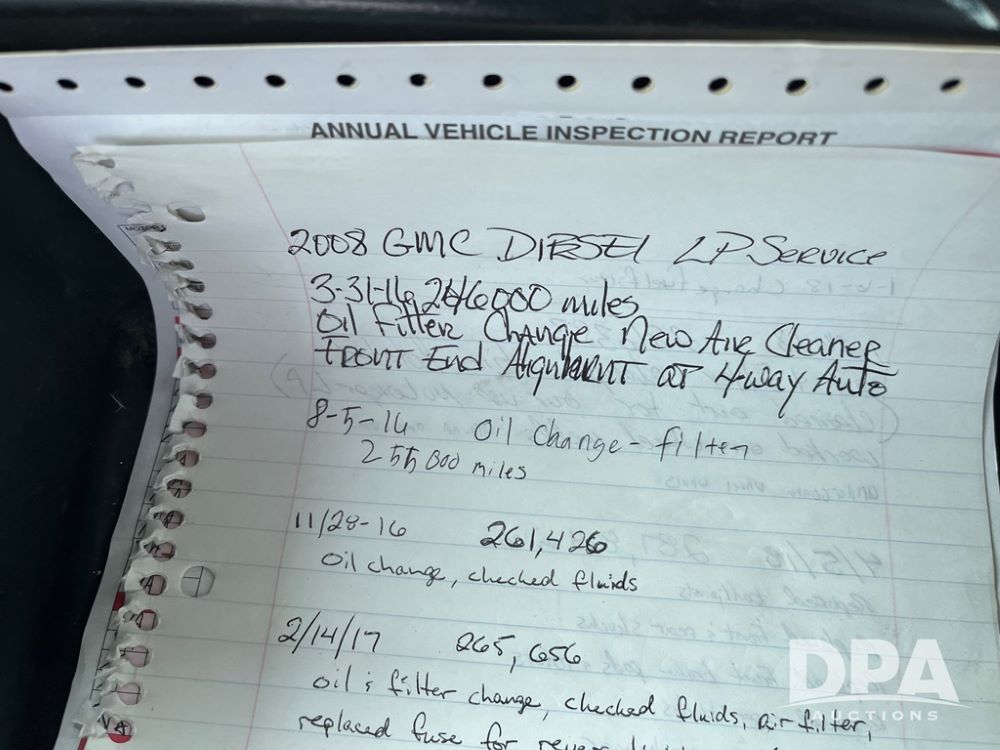 ANNUAL VEHICLE INSPECTION REPORT
2008 GMC DIESEL LP SERVICE
3-31-16 246000 miles
Oil Filter Change New Air Cleaner
FRONT End Alignment at 4-way Auto
8-5-16 Oil Change - filter
255000 miles
11/28-16 261,426
Oil change, checked fluids
2/14/17 265,656
oil & filter change, checked fluids, air filter,
replaced fuse for
DPA
AUCTIONS